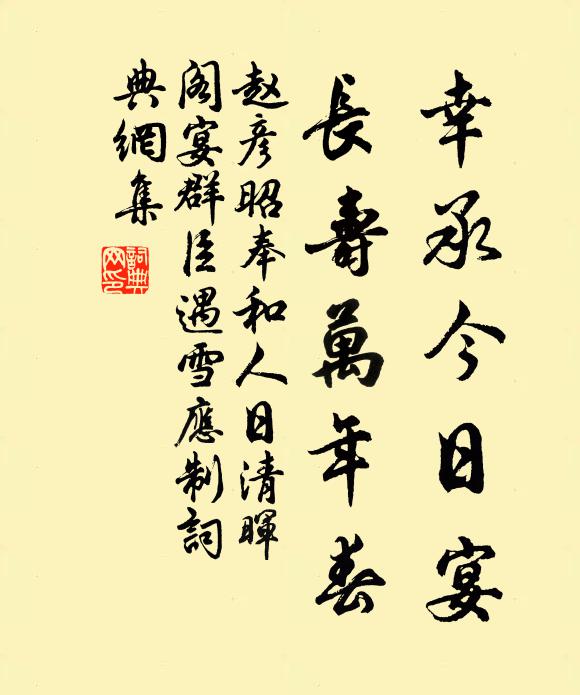 幸承今日宴
長壽萬年春
趙彥昭奉和人日清暉
閣宴群臣遇雪應制詞
典網集
詞典
网印